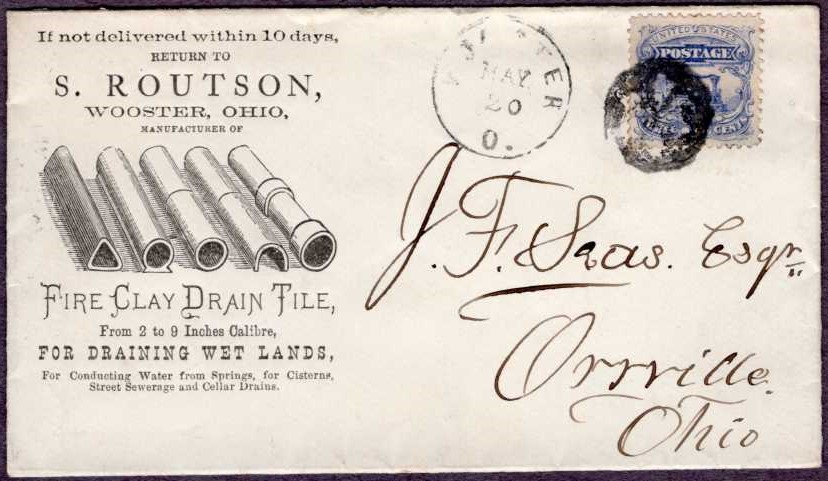 If not delivered within 10 days,
RETURN TO
S. ROUTSON,
WOOSTER, OHIO,
MANUFACTURER OF
FIRE CLAY DRAIN TILE,
From 2 to 9 Inches Calibre,
FOR DRAINING WET LANDS,
For Conducting Water from Springs, for Cisterns,
Street Sewerage and Cellar Drains.
MAY
20
O.
UNITED STATES
POSTAGE
CENTS
J. F. Seas. Esqr
Orrville
Ohio